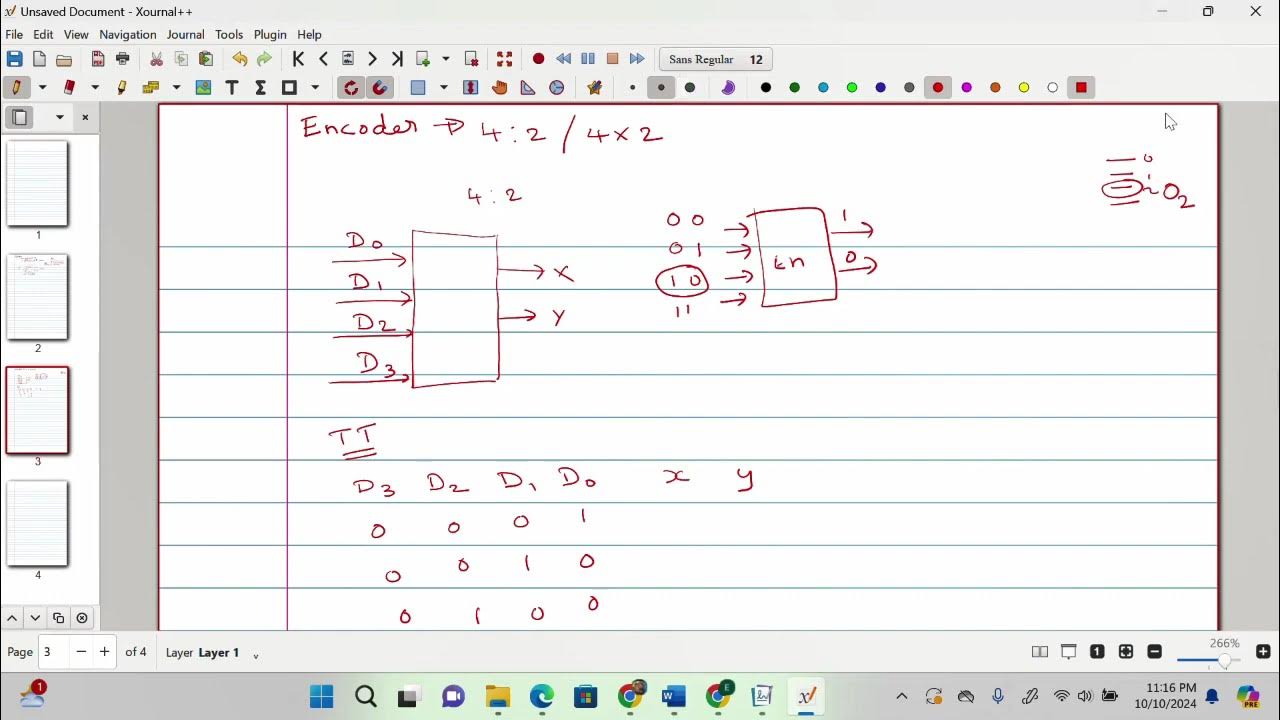 Unsaved Document - Xournal++
File Edit View Navigation Journal Tools Plugin Help
Sans Regular 12
1
2
3
4
Encoder → 4:2 / 4x2
4:2
D0
D1
D2
D3
X
Y
0 0
0 1
1 0
11
En
1
0
0
1
02
TT
D3 D2 D1 D0 x y
0 0 0 1
0 0 1 0
0 1 0 0
Page 3 of 4 Layer Layer 1
266%
1
11:16 PM
10/10/2024
PRE